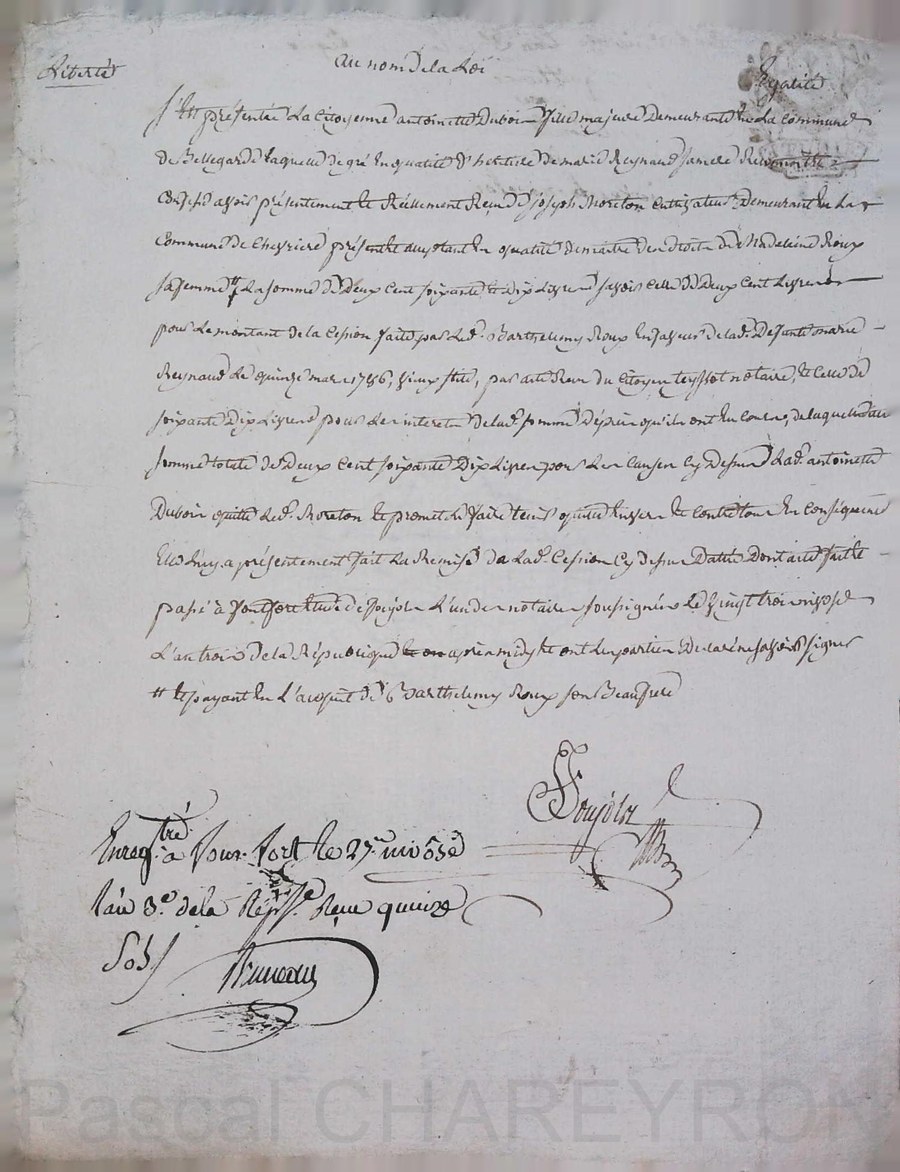 Liberté
au nom de la Loi
Egalité
S'est présentée La Citoyenne antoinette Duboin fille majeure Demeurante en La Commune
De Bellegarde laquelle de gré en qualité d'héritière de marie Reynaud sa mere
présentement et Réellement Reçu de joseph Moreton Demeurant en La
Commune de Chevriere en qualité de maitre des droits de Madeleine Roux
sa femme # La somme de Deux Cent soixante et dix Livres savoir celle de Deux Cent Livres
pour Le montant de la Cession faite par Led. Barthelemy Roux en faveur de lad. Defunte marie
Reynaud Le quinze mars 1786, vieux stile, par acte Reçu du Citoyen teyssot notaire, et Celle de
soixante Dix Livres pour Les interets de lad. somme Depuis qu'ils ont en Cours, de laquelle
somme totale de Deux Cent soixante Dix Livres pour Les Causes Cy Dessus Lad. antoinette
Duboin quitte Led. Moreton et promet Le faire tenir quitte Envers et Contre tous En Conséquence
a présentement fait La Remise de Lad. Cession Cy dessus Dattée Dont acte fait et
passé à fontfort Etude de Poujol L'un des notaires soussignés Le vingt trois nivose
L'an trois de la République après midy et ont Les parties Declaré ne savoir signer
# et payant en L'acquit de Barthelemy Roux son Beaufrere
Poujol
Enreg.tré à Fonfort le 27. nivose
l'an 3.e de la Rép. Reçu quinze
Sols
Bruneau
Pascal CHAREYRON